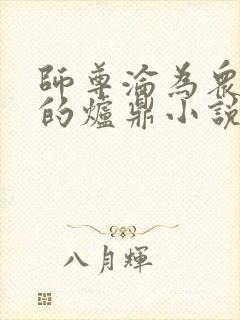 師尊淪為眾
的爐鼎小說
八月輝